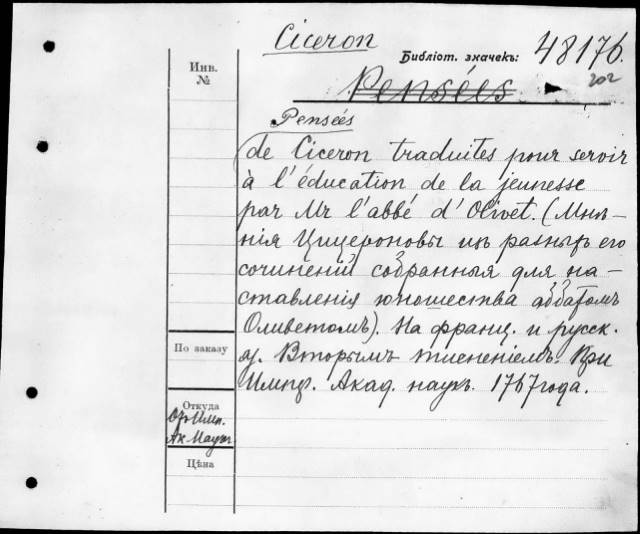 Ciceron
Библіот. значекъ: 48176.
202
Инв.
№
Pensées
Pensées
de Ciceron traduites pour servoir
à l'éducation de la jeunesse
par Mr l'abbé d'Olivet. (Мнѣ-
нія Цицероновы изъ разныхъ его
сочиненій собранныя для на-
ставленія юношества аббатомъ
Оливетомъ). На франц. и русск.
я. Вторымъ тисненіемъ. При
Импр. Акад. наукъ. 1767 года.
По заказу
Откуда
Ак. Наукъ
Цѣна